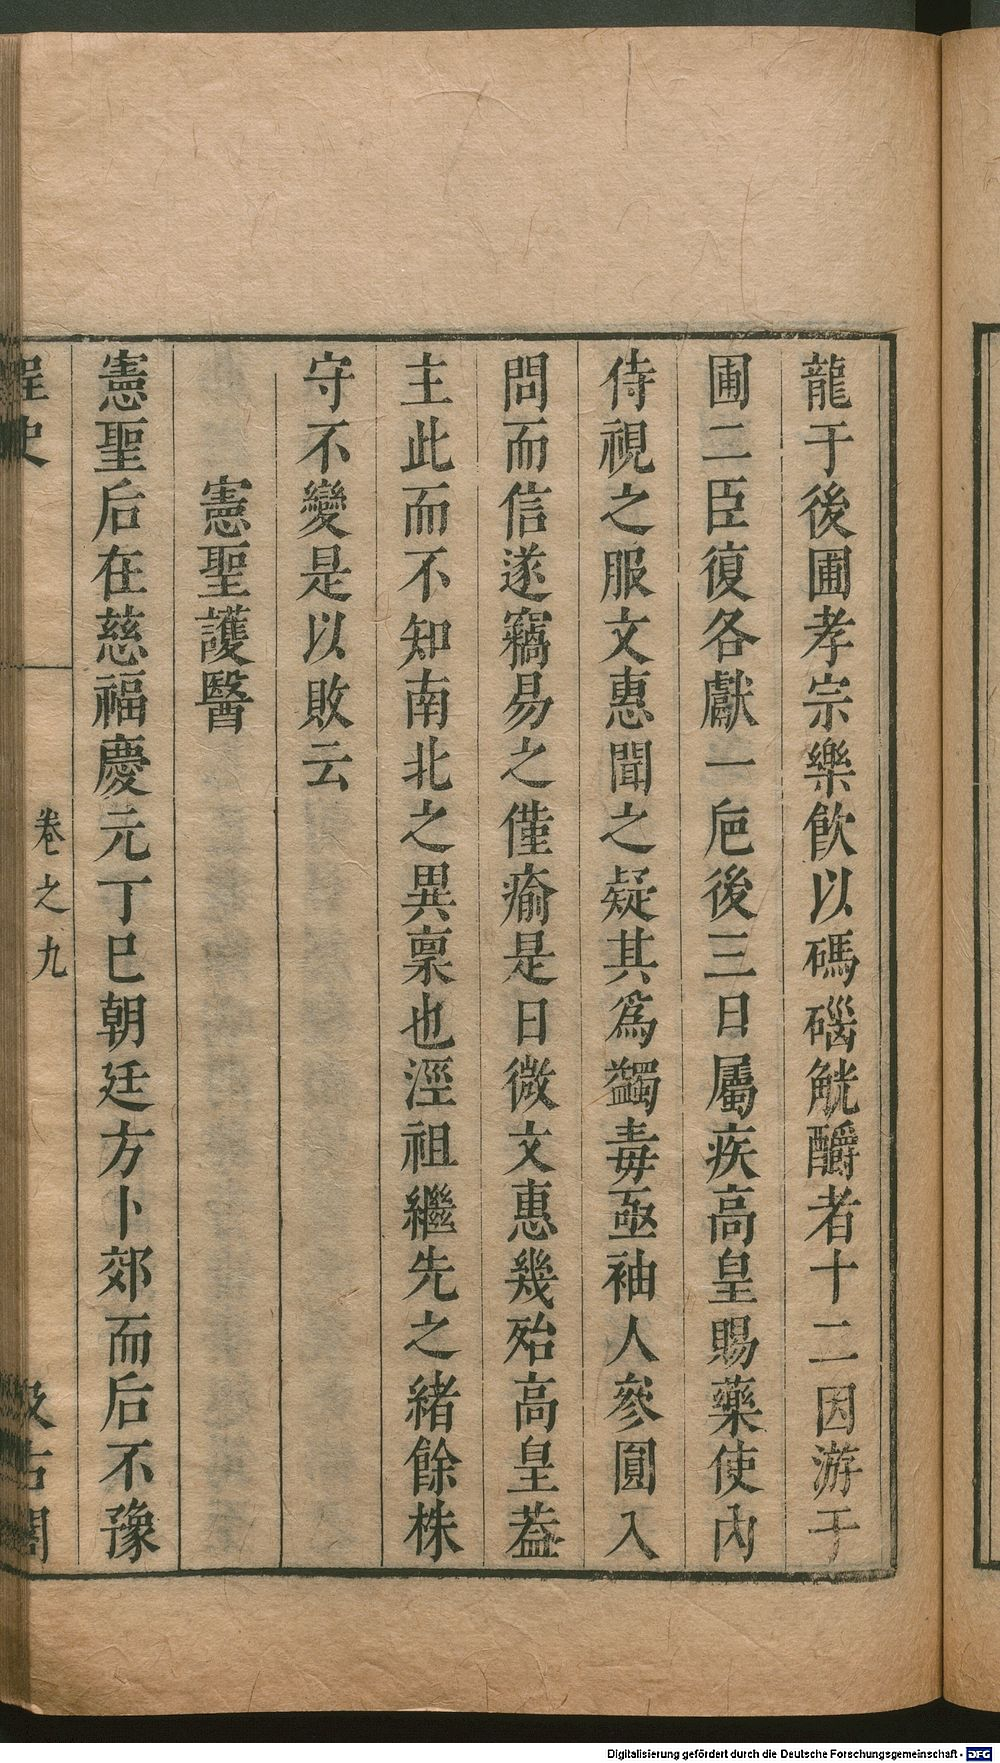 龍于後圃孝宗樂飲以碼碯觥釂者十二因游于
圃二臣復各獻一巵後三日屬疾高皇賜藥使內
侍視之服文惠聞之疑其爲蠲毒亟袖人參圓入
問而信遂竊易之僅瘉是日微文惠幾殆高皇葢
主此而不知南北之異稟也涇祖繼先之緖餘株
守不變是以敗云
憲聖護醫
憲聖后在慈福慶元丁巳朝廷方卜郊而后不豫
桯史
卷之九
汲古閣
Digitalisierung gefördert durch die Deutsche Forschungsgemeinschaft - DFG